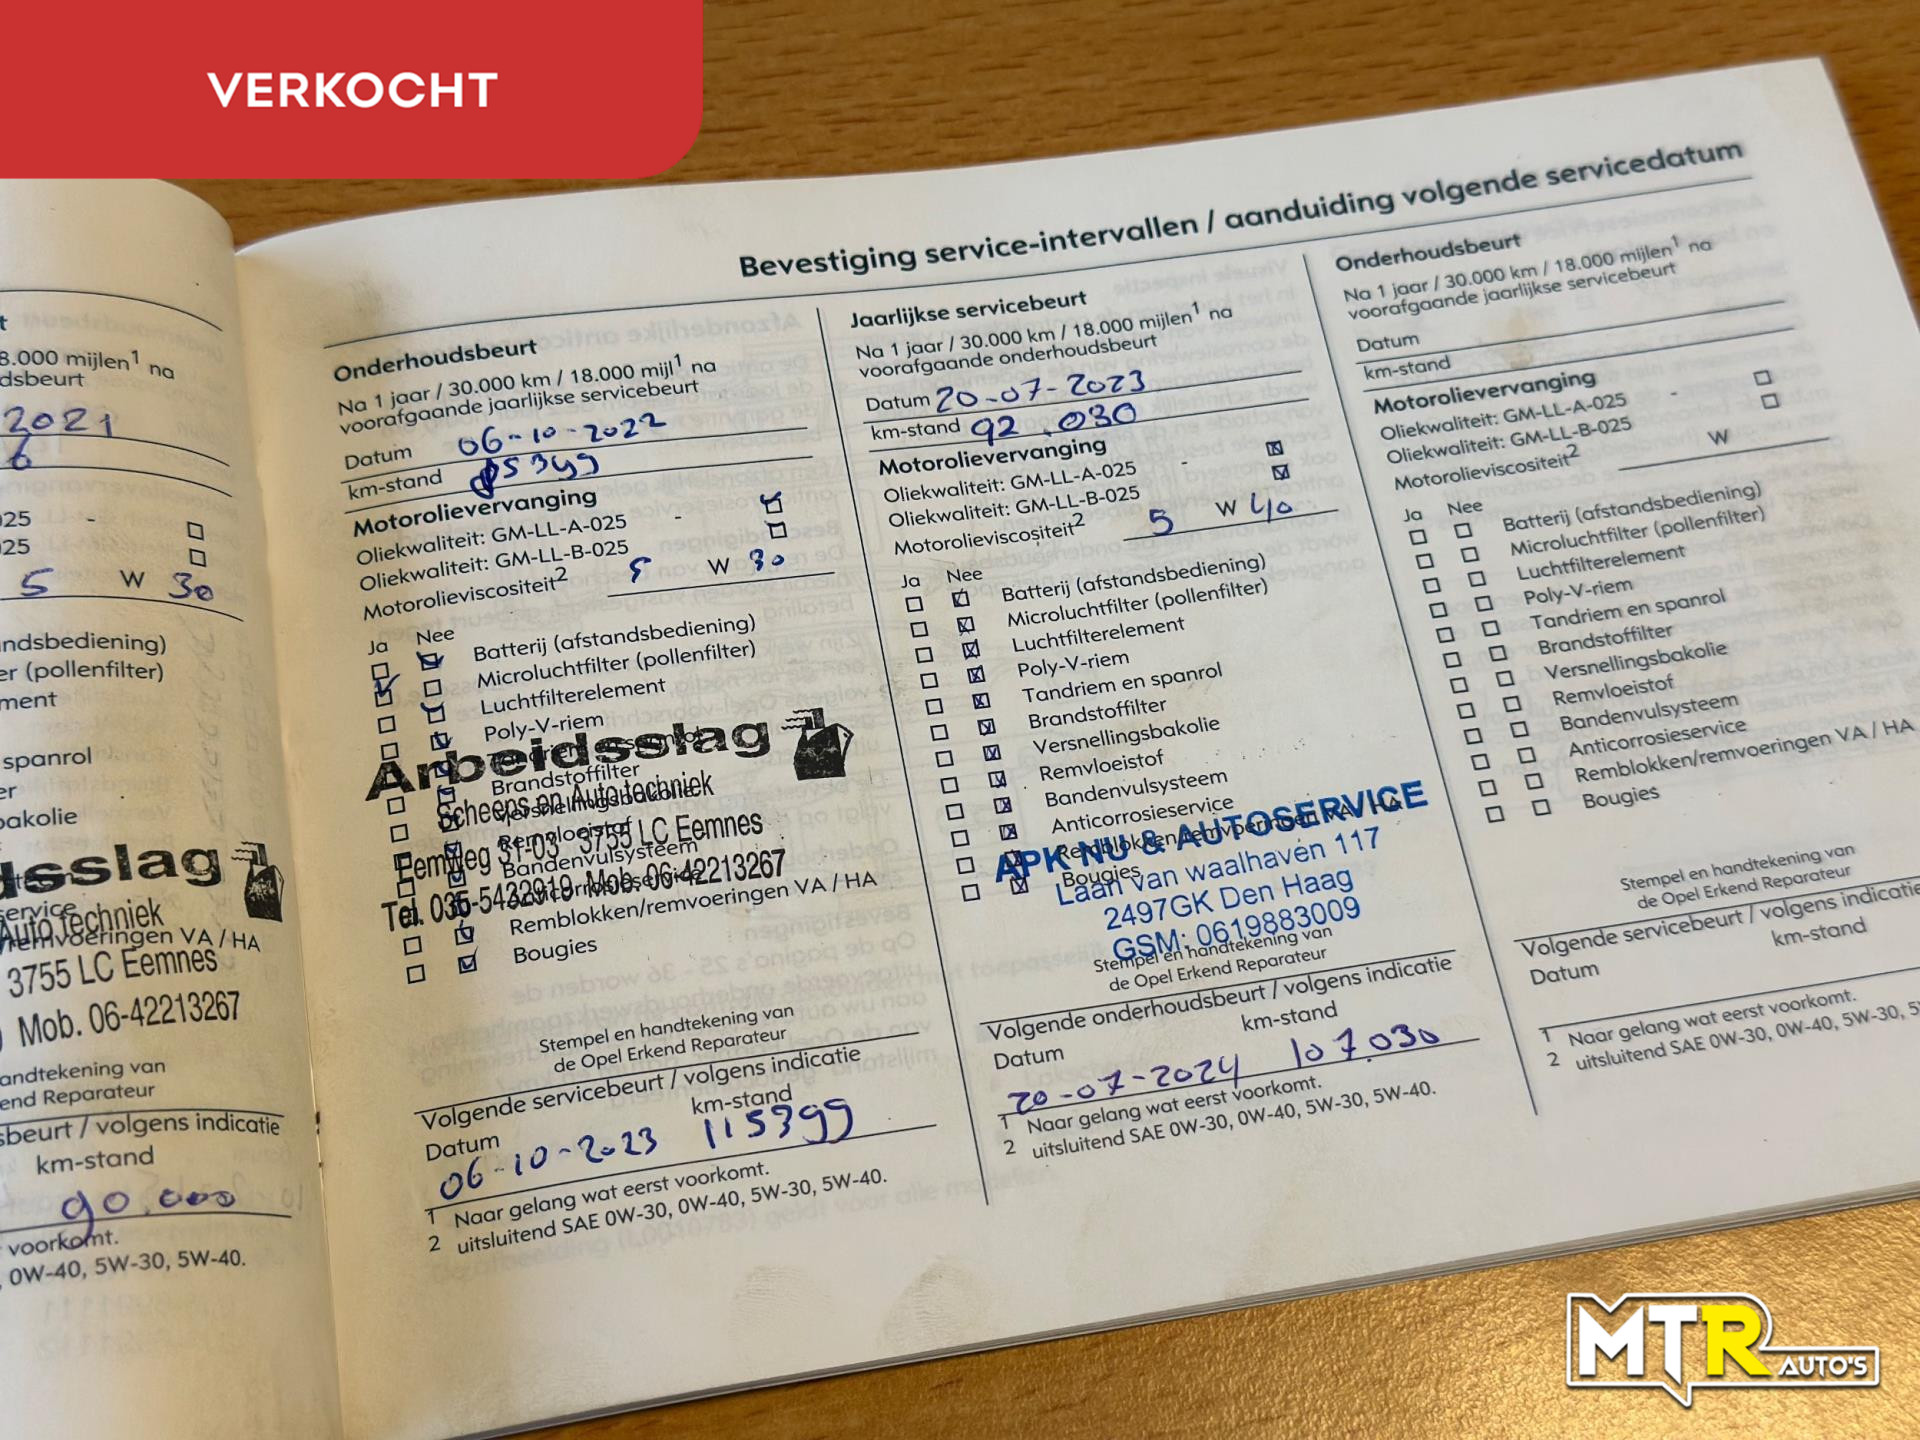 VERKOCHT
Bevestiging service-intervallen / aanduiding volgende servicedatum
t
8.000 mijlen1 na
dsbeurt
2021
6
025 -
025
5 W 30
andsbediening)
er (pollenfilter)
ment
spanrol
er
bakolie
dsslag
service
Auto techniek
remvoeringen VA / HA
3755 LC Eemnes
Mob. 06-42213267
andtekening van
end Reparateur
sbeurt / volgens indicatie
km-stand
90.000
voorkomt.
, 0W-40, 5W-30, 5W-40.
Onderhoudsbeurt
Na 1 jaar / 30.000 km / 18.000 mijl1 na
voorafgaande jaarlijkse servicebeurt
Datum 06-10-2022
km-stand 85399
Motorolievervanging
Oliekwaliteit: GM-LL-A-025 -
Oliekwaliteit: GM-LL-B-025
Motorolieviscositeit2 5 W 30
Ja Nee
Batterij (afstandsbediening)
Microluchtfilter (pollenfilter)
Luchtfilterelement
Poly-V-riem
Arbeidsslag
Brandstoffilter
Scheens en Auto techniek
Versnellingsbakolie
Remvloeistof
Eemweg 31-03 3755 LC Eemnes
Bandenvulsysteem
Tel. 035-5432919 Mob. 06-42213267
Remblokken/remvoeringen VA / HA
Bougies
Stempel en handtekening van
de Opel Erkend Reparateur
Volgende servicebeurt / volgens indicatie
km-stand
Datum
06-10-2023 115399
1 Naar gelang wat eerst voorkomt.
2 uitsluitend SAE 0W-30, 0W-40, 5W-30, 5W-40.
Jaarlijkse servicebeurt
Na 1 jaar / 30.000 km / 18.000 mijlen1 na
voorafgaande onderhoudsbeurt
Datum 20-07-2023
km-stand 92.030
Motorolievervanging
Oliekwaliteit: GM-LL-A-025 -
Oliekwaliteit: GM-LL-B-025
Motorolieviscositeit2 5 W 40
Ja Nee
Batterij (afstandsbediening)
Microluchtfilter (pollenfilter)
Luchtfilterelement
Poly-V-riem
Tandriem en spanrol
Brandstoffilter
Versnellingsbakolie
Remvloeistof
Bandenvulsysteem
Anticorrosieservice
Remblokken/remvoeringen VA / HA
APK NU & AUTOSERVICE
Bougies
Laan van waalhaven 117
2497GK Den Haag
GSM: 0619883009
Stempel en handtekening van
de Opel Erkend Reparateur
Volgende onderhoudsbeurt / volgens indicatie
km-stand
Datum
20-07-2024 107.030
1 Naar gelang wat eerst voorkomt.
2 uitsluitend SAE 0W-30, 0W-40, 5W-30, 5W-40.
Onderhoudsbeurt
Na 1 jaar / 30.000 km / 18.000 mijlen1 na
voorafgaande jaarlijkse servicebeurt
Datum
km-stand
Motorolievervanging
Oliekwaliteit: GM-LL-A-025 -
Oliekwaliteit: GM-LL-B-025
Motorolieviscositeit2 W
Ja Nee
Batterij (afstandsbediening)
Microluchtfilter (pollenfilter)
Luchtfilterelement
Poly-V-riem
Tandriem en spanrol
Brandstoffilter
Versnellingsbakolie
Remvloeistof
Bandenvulsysteem
Anticorrosieservice
Remblokken/remvoeringen VA / HA
Bougies
Stempel en handtekening van
de Opel Erkend Reparateur
Volgende servicebeurt / volgens indicatie
km-stand
Datum
1 Naar gelang wat eerst voorkomt.
2 uitsluitend SAE 0W-30, 0W-40, 5W-30, 5
MTR AUTO'S